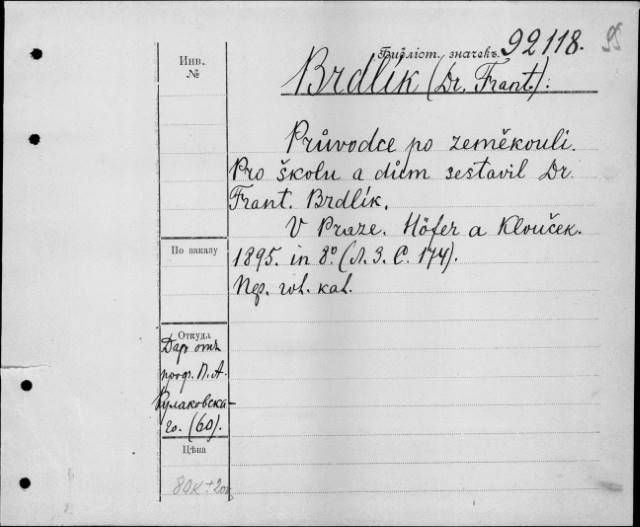 Библіот. значекъ. 92118. 95
Инв.
№
Brdlík (Dr. Frant.):
Průvodce po zeměkouli.
Pro školu a dům sestavil Dr.
Frant. Brdlík.
V Praze. Höfer a Klouček.
По заказу
1895. in 8º (Л. З. С. 174).
Откуда
Даръ отъ
проф. П. А.
Кулаковска-
го. (60).
Цѣна
80к + 20к